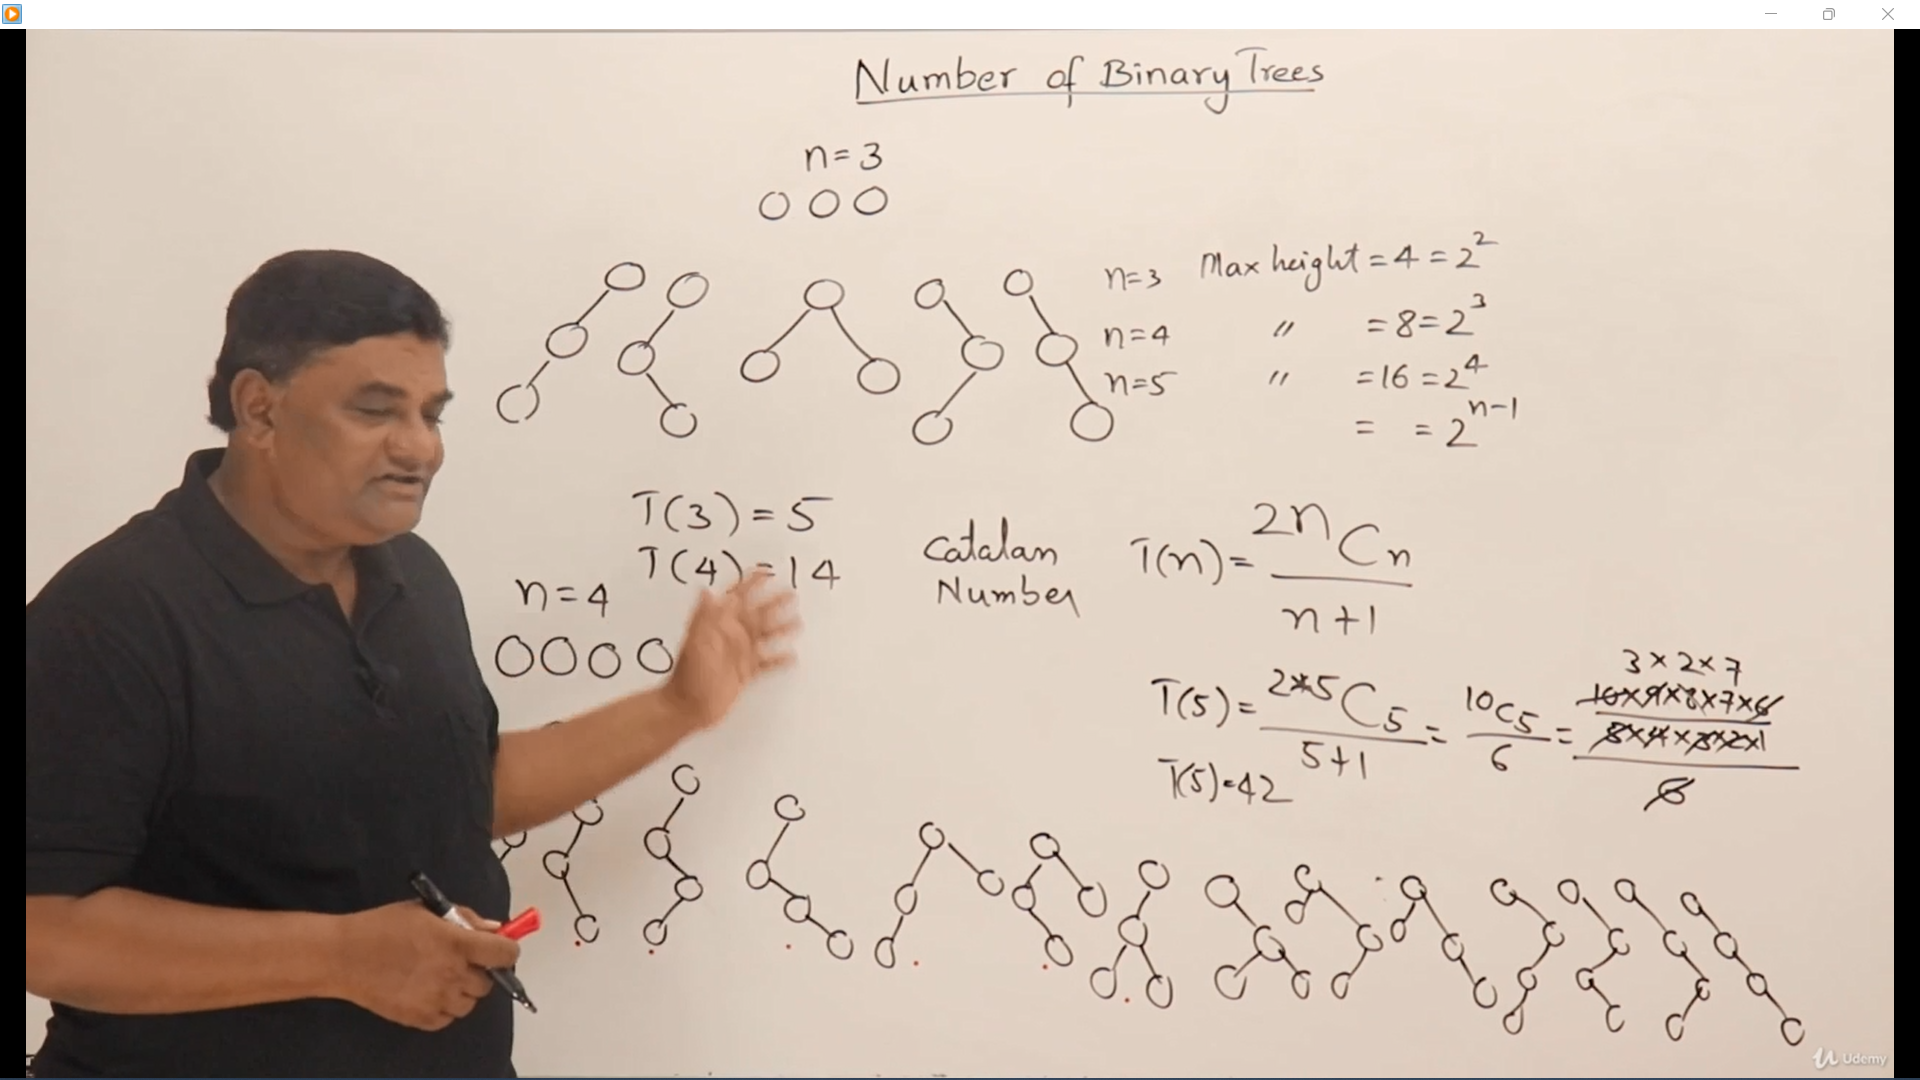 Number of Binary Trees
n=3
n=3 Max height = 4 = 2²
n=4 〃 = 8 = 2³
n=5 〃 = 16 = 2⁴
= = 2ⁿ⁻¹
T(3) = 5
T(4) = 14
n=4
Catalan
Number
T(n) = 2nCn / n+1
3×2×7
T(5) = 2*5C5 / 5+1 = 10C5 / 6 = 10×9×8×7×6 / 5×4×3×2×1 / 6
T(5)=42
Udemy